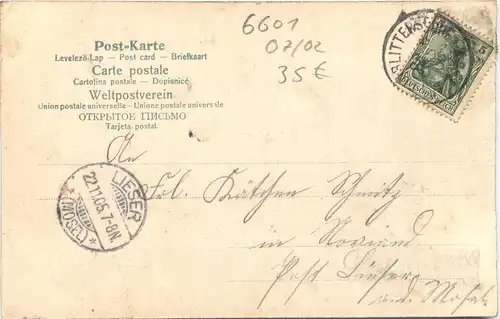 6601
07/02
35€
Post-Karte
Levelező-Lap — Post card — Briefkaart
Carte postale
Cartolina postale — Dopisnice
Weltpostverein
Union postale universelle — Unione postale universale
ОТКРЫТОЕ ПИСЬМО
Tarjeta postal.
BLITTERSD
An
Frl. Käthchen Schmitz
in Noviand
Post Lieser
a. d. Mosel
LIESER
22.11.05.7-8N.
* (MOSEL) *